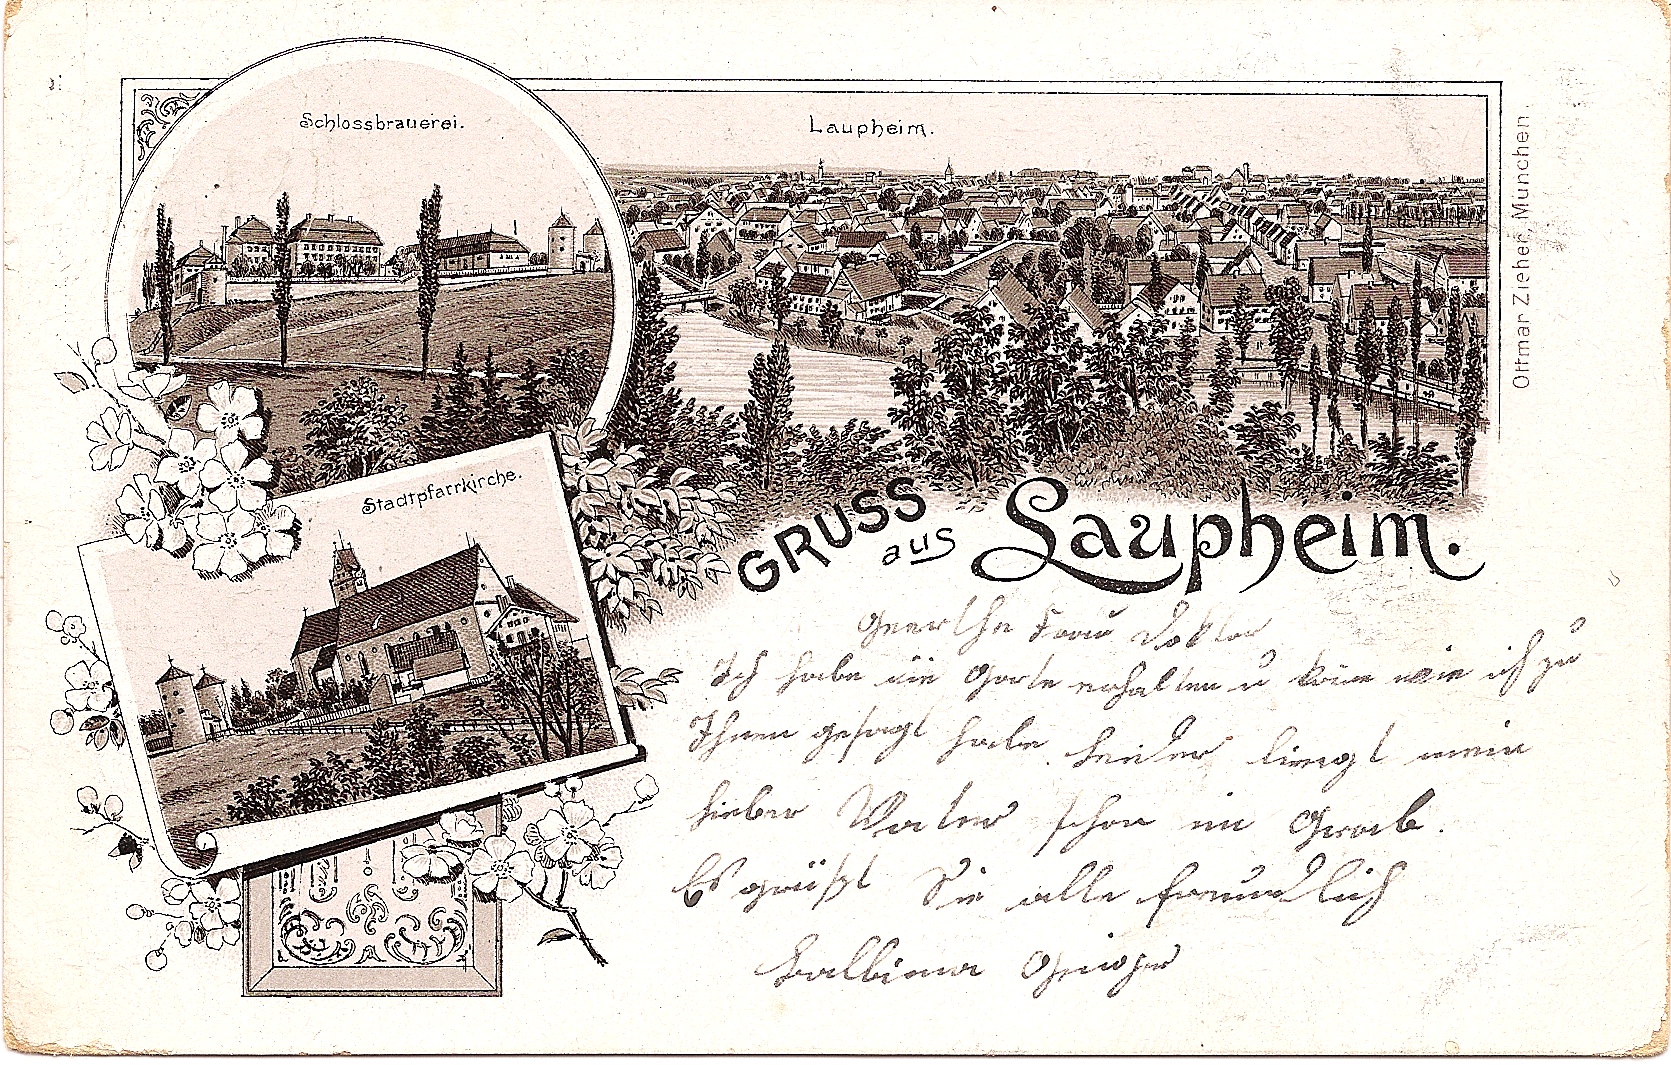 Schlossbrauerei.
Laupheim.
Ottmar Zieher, München.
Stadtpfarrkirche.
GRUSS
aus Laupheim.
Geerthe Frau Doktor
Ich habe die Garte erhalten u wie ich zu
Ihnen gesagt habe. Leider liengt mein
lieber Vater schon im Grab.
Es grüßt Sie alle freundlich
Balbina